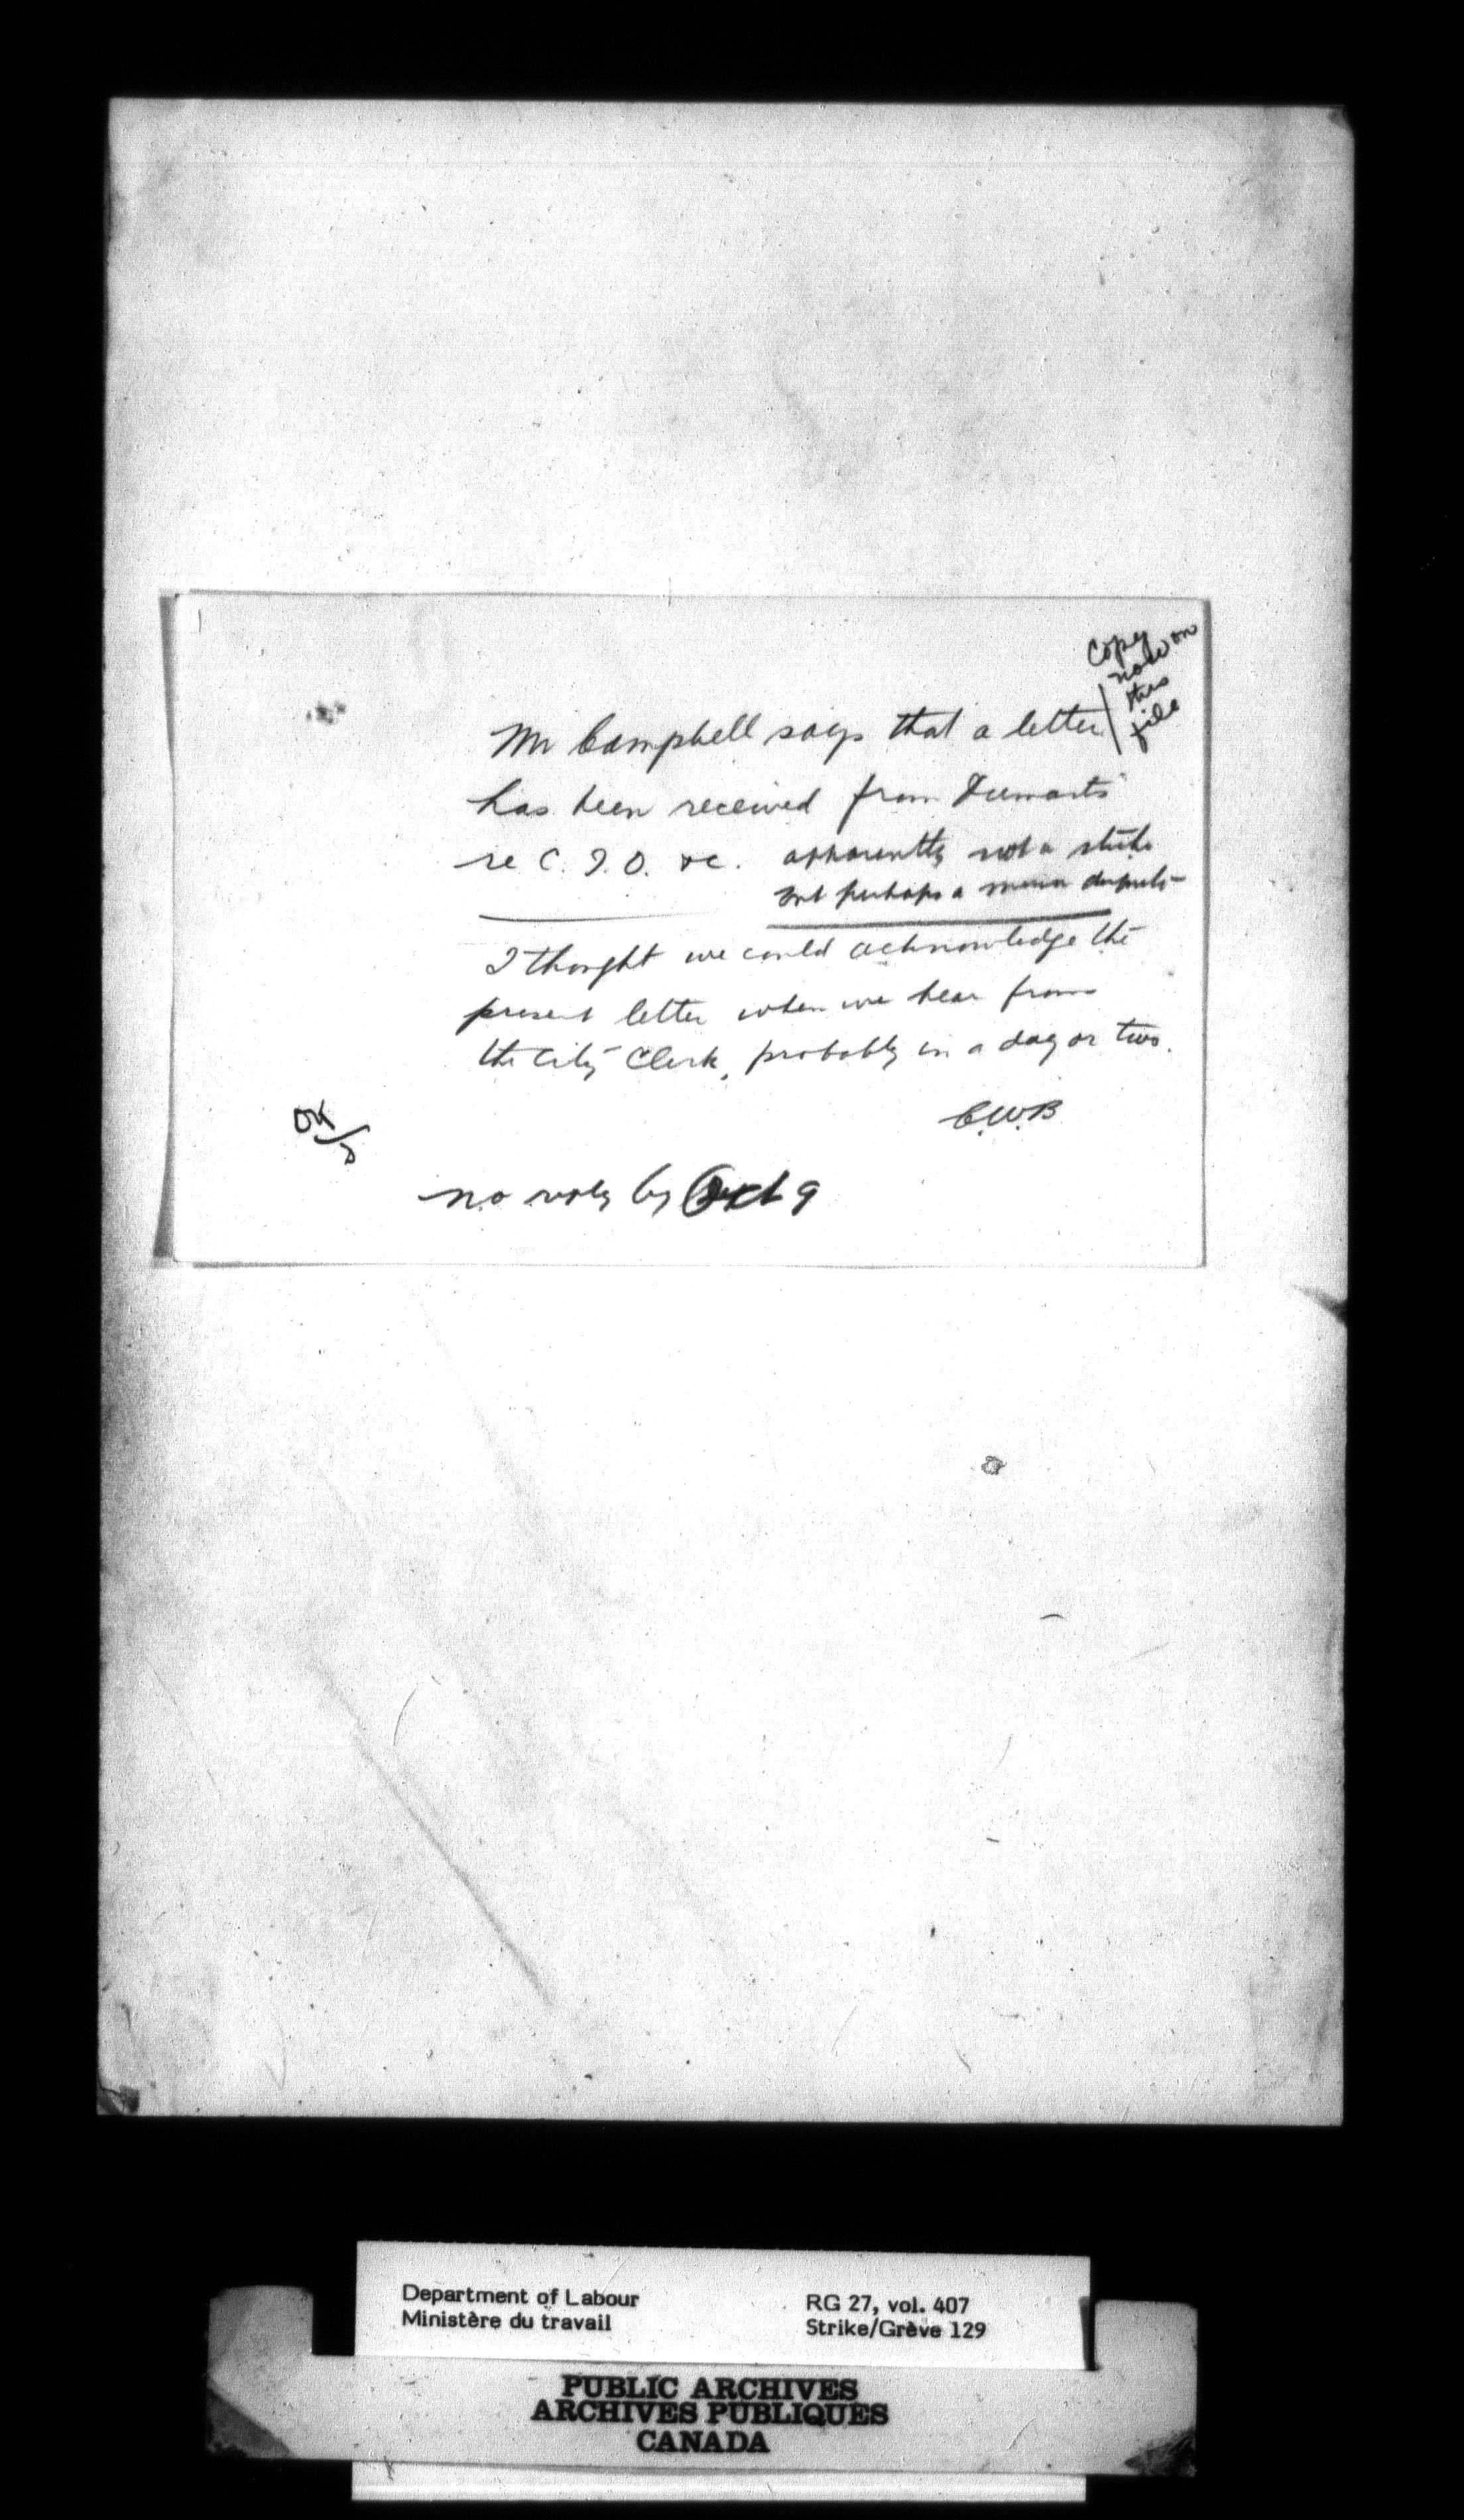 Copy
now on
this
file
Mr Campbell says that a letter
has been received from Dumarts
re C.I.O. &c. apparently not a strike
but perhaps a minor dispute
I thought we could acknowledge the
present letter when we hear from
the City Clerk, probably in a day or two.
C.W.B
OK
no reply by Oct 9
Department of Labour
Ministère du travail
RG 27, vol. 407
Strike/Grève 129
PUBLIC ARCHIVES
ARCHIVES PUBLIQUES
CANADA